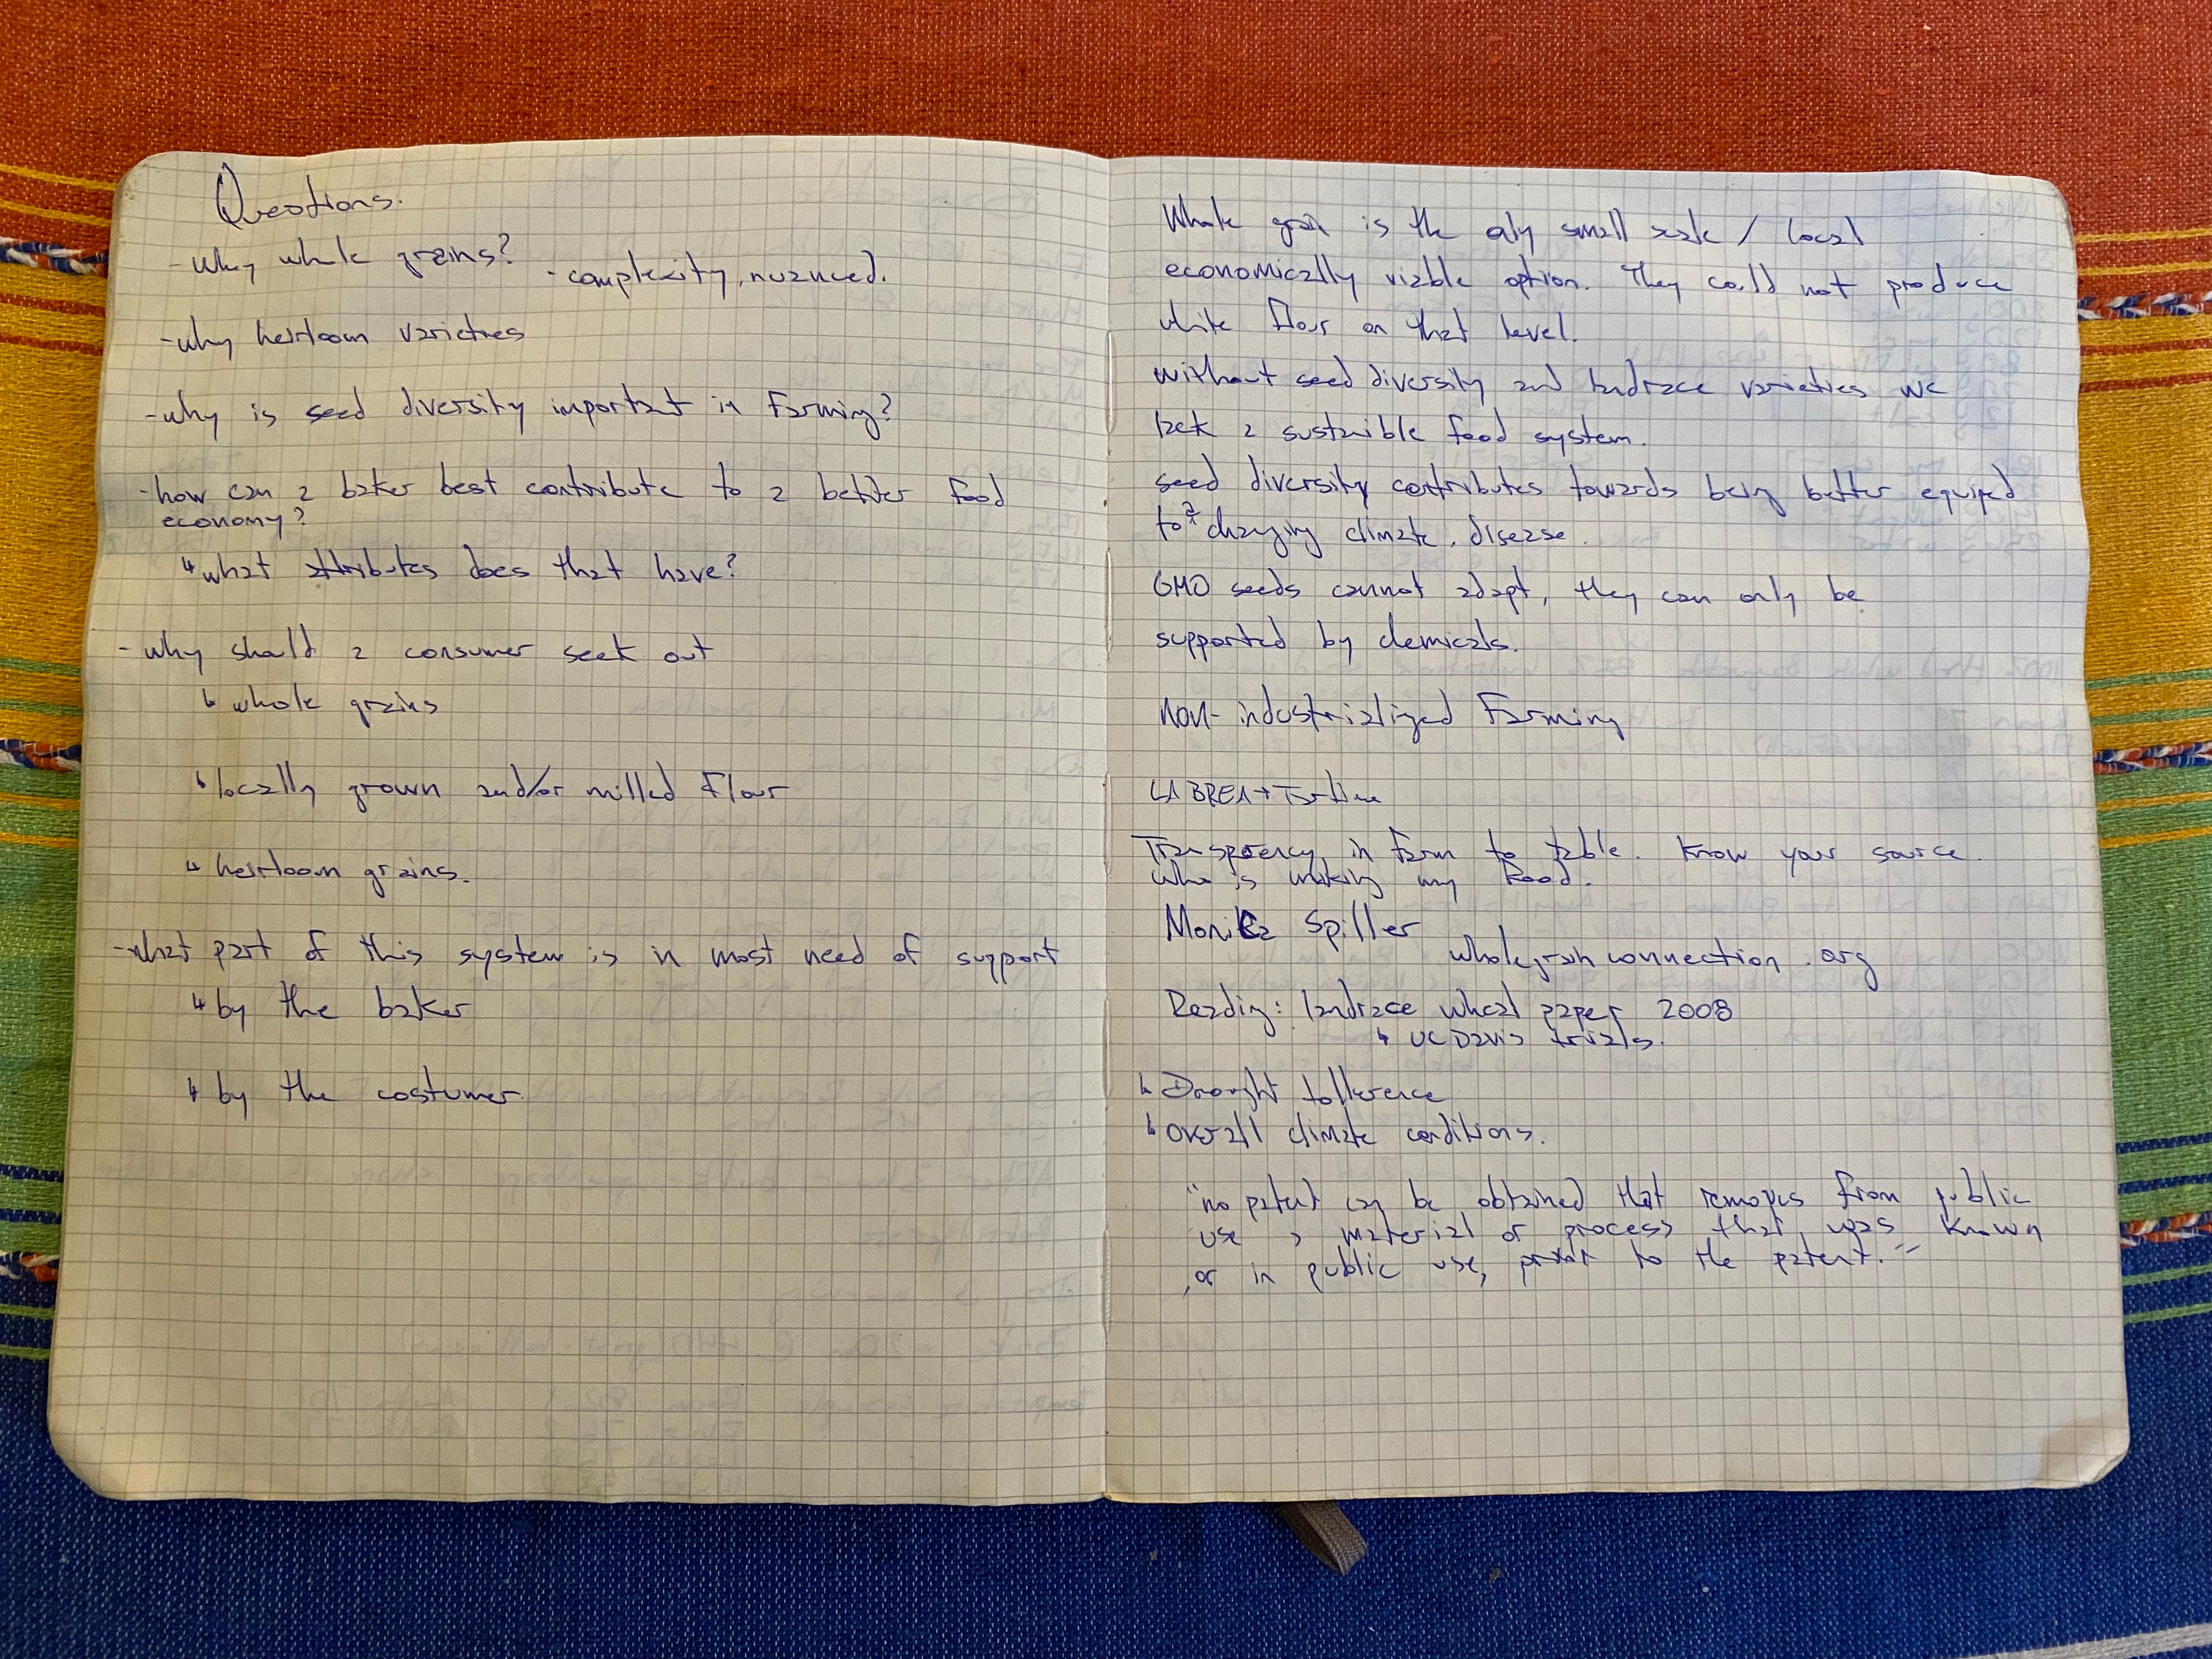 Questions.
- Why whole grains?
- complexity, nuanced.
- why heirloom varieties
- why is seed diversity important in farming?
- how can a baker best contribute to a better food
economy?
↳ what attributes does that have?
- why should a consumer seek out
↳ whole grains
↳ locally grown and/or milled flour
↳ heirloom grains.
- what part of this system is in most need of support
↳ by the baker
↳ by the costumer
Whole grain is the only small scale / local
economically viable option. They could not produce
white flour on that level.
without seed diversity and landrace varieties we
lack a sustainible food system.
seed diversity contributes towards being better equiped
to a changing climate, disease.
GMO seeds cannot adapt, they can only be
supported by chemicals.
non-industrialized Farming
LA BREA + Tartine
Transparency in farm to table. Know your source.
Who is making my food.
Monica Spiller
wholegrainconnection.org
Reading: landrace wheat paper 2008
↳ UC Davis trials.
↳ Drought tollerence
↳ overall climate conditions.
"no patent can be obtained that removes from public
use a material or process that was known
, or in public use, prior to the patent."